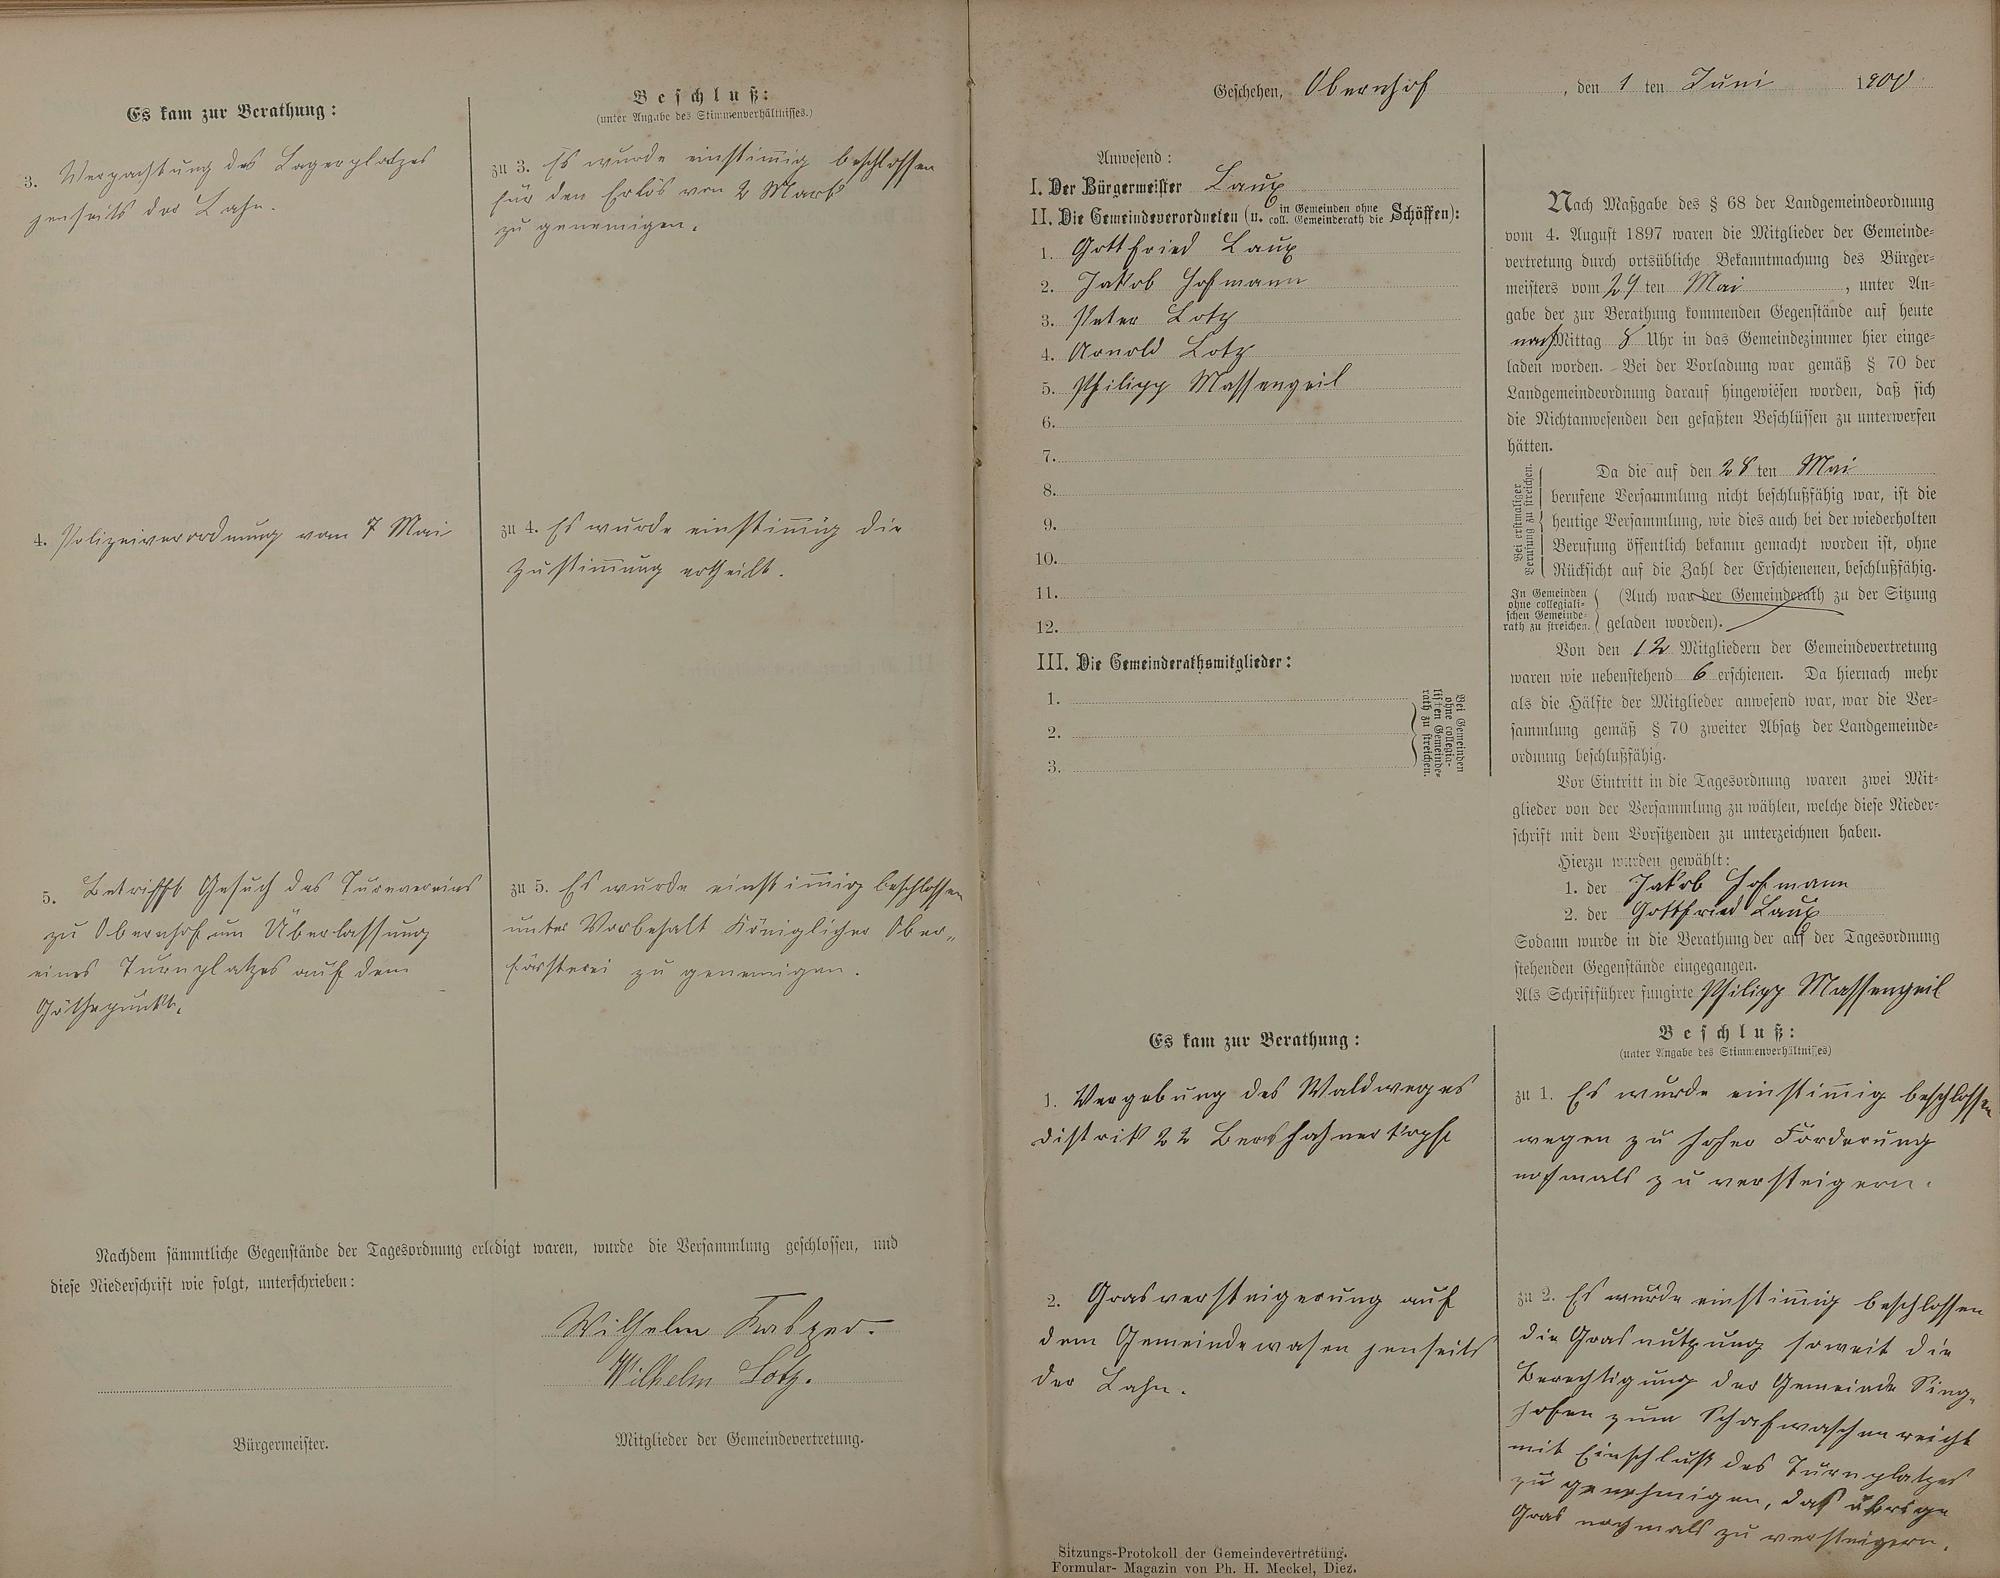 Es kam zur Berathung:
3. Verpachtung des Lagerplatzes
jenseits der Lahn.
4. Polizeiverordnung vom 7 Mai
5. Betrifft Gesuch des Turnvereins
zu Obernhof um Überlassung
eines Turnplatzes auf dem
Göthepunkt.
Beschluß:
(unter Angabe des Stimmenverhältnisses.)
zu 3. Es wurde einstim̅ig beschlossen
für den Erlös von 2 Mark
zu genemigen.
zu 4. Es wurde einstim̅ig die
Zustim̅ung ertheilt.
zu 5. Es wurde einstim̅ig beschlossen
unter Vorbehalt Königlicher Ober-
försterei zu genemigen.
Nachdem sämmtliche Gegenstände der Tagesordnung erledigt waren, wurde die Versammlung geschlossen, und
diese Niederschrift wie folgt, unterschrieben:
Wilhelm Kasper.
Wilhelm Lotz.
Bürgermeister.
Mitglieder der Gemeindevertretung.
Geschehen, Obernhof, den 1 ten Juni 1900
Anwesend:
I. Der Bürgermeister Laux
II. Die Gemeindeverordneten (u. in Gemeinden ohne coll. Gemeinderath die Schöffen):
1. Gottfried Laux
2. Jakob Hofmann
3. Peter Lotz
4. Arnold Lotz
5. Philipp Massengeil
6.
7.
8.
9.
10.
11.
12.
III. Die Gemeinderathsmitglieder:
1.
2.
3.
Bei Gemeinden
ohne collegia-
lischen Gemeinde-
rath zu streichen.
Nach Maßgabe des § 68 der Landgemeindeordnung
vom 4. August 1897 waren die Mitglieder der Gemeinde-
vertretung durch ortsübliche Bekanntmachung des Bürger-
meisters vom 29 ten Mai, unter An-
gabe der zur Berathung kommenden Gegenstände auf heute
nachMittag 8 Uhr in das Gemeindezimmer hier einge-
laden worden. Bei der Vorladung war gemäß § 70 der
Landgemeindeordnung darauf hingewiesen worden, daß sich
die Nichtanwesenden den gefaßten Beschlüssen zu unterwerfen
hätten.
Bei erstmaliger
Berufung zu streichen.
Da die auf den 28 ten Mai
berufene Versammlung nicht beschlußfähig war, ist die
heutige Versammlung, wie dies auch bei der wiederholten
Berufung öffentlich bekannt gemacht worden ist, ohne
Rücksicht auf die Zahl der Erschienenen, beschlußfähig.
In Gemeinden
ohne collegiali-
schen Gemeinde-
rath zu streichen.
(Auch war der Gemeinderath zu der Sitzung
geladen worden).
Von den 12 Mitgliedern der Gemeindevertretung
waren wie nebenstehend 6 erschienen. Da hiernach mehr
als die Hälfte der Mitglieder anwesend war, war die Ver-
sammlung gemäß § 70 zweiter Absatz der Landgemeinde-
ordnung beschlußfähig.
Vor Eintritt in die Tagesordnung waren zwei Mit-
glieder von der Versammlung zu wählen, welche diese Nieder-
schrift mit dem Vorsitzenden zu unterzeichnen haben.
Hierzu wurden gewählt:
1. der Jakob Hofmann
2. der Gottfried Laux
Sodann wurde in die Berathung der auf der Tagesordnung
stehenden Gegenstände eingegangen.
Als Schriftführer fungirte Philipp Massengeil
Es kam zur Berathung:
1. Vergebung des Waldweges
Distrikt 22
2. Grasversteigerung auf
dem Gemeindewasen jenseits
der Lahn.
Beschluß:
(unter Angabe des Stimmenverhältnisses)
zu 1. Es wurde einstim̅ig beschlossen
wegen zu hoher Forderung
nochmals zu versteigern.
zu 2. Es wurde einstim̅ig beschlossen
die Grasnutzung soweit die
Berechtigung der Gemeinde Sing-
hofen zum Schafwaschen reicht
mit Einschluß des Turnplatzes
zu genehmigen, das übrige
Gras nochmals zu versteigern.
Sitzungs-Protokoll der Gemeindevertretung.
Formular-Magazin von Ph. H. Meckel, Diez.